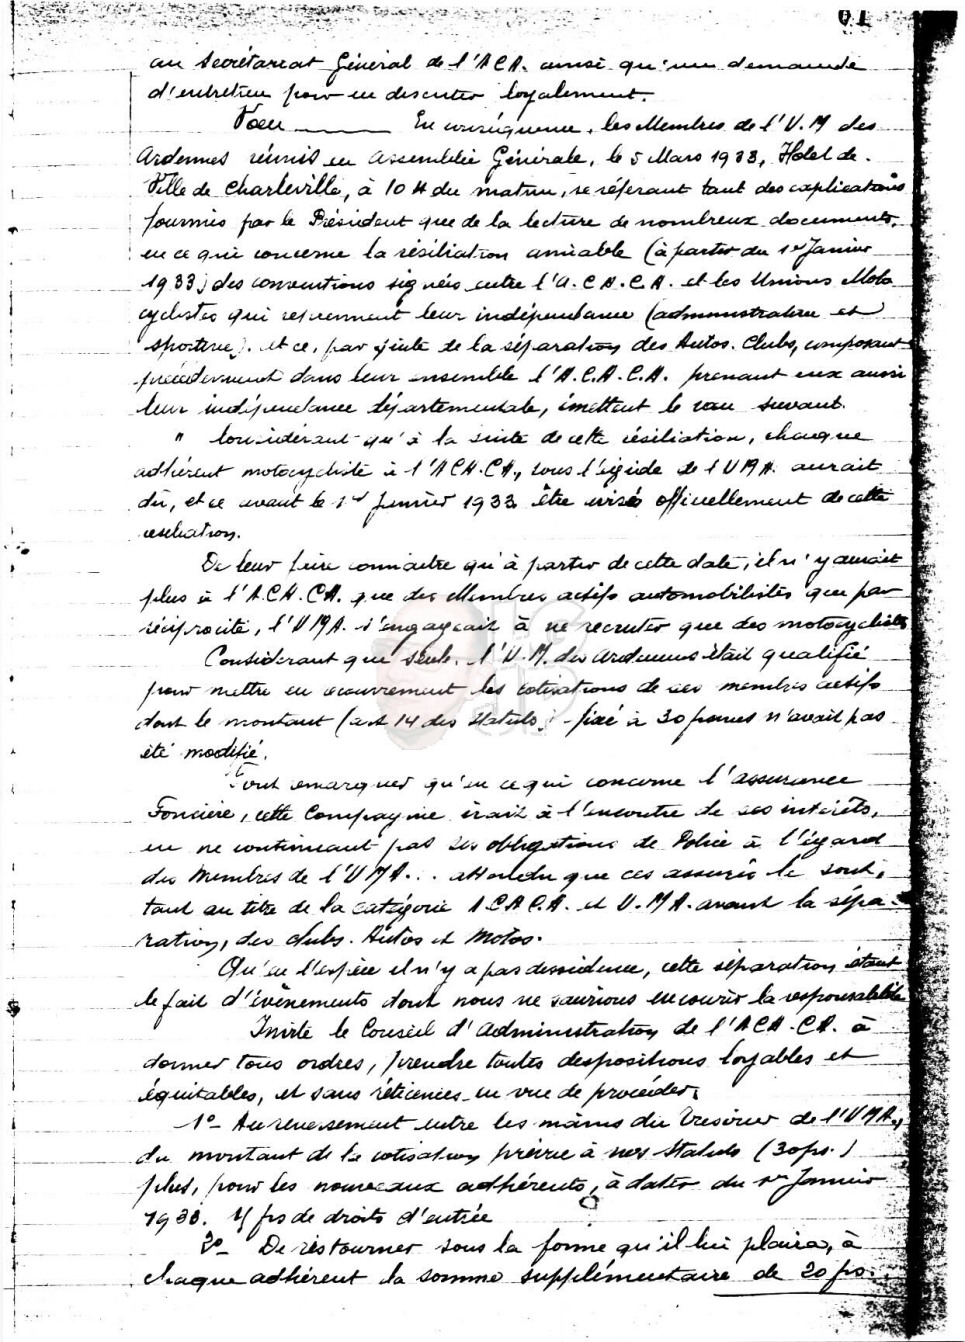 61
au Secrétariat Général de l'ACA. ainsi qu'une demande
d'entretien pour en discuter loyalement.
Voeu _____ En conséquence, les Membres de l'U.M des
Ardennes réunis en Assemblée Générale, le 5 Mars 1933, Hotel de
Ville de Charleville, à 10 H du matin, se référant tant des explications
fournies par le Président que de la lecture de nombreux documents,
en ce qui concerne la résiliation amiable (à partir du 1er Janvier
1933) des conventions signées entre l'A.C.A.C.A. et les Unions Moto
cyclistes qui reprennent leur indépendance (administrative et
sportive). et ce, par suite de la séparation des Autos. Clubs, composant
précédemment dans leur ensemble l'A.C.A.C.A. prenant eux aussi
leur indépendance départementale, émettent le voeu suivant.
" Considérant qu'à la suite de cette résiliation, chaque
adhérent motocycliste à l'ACA.CA., sous l'égide de l'UMA. aurait
dû, et ce avant le 1er Janvier 1933 être avisés officiellement de cette
résiliation.
De leur faire connaitre qu'à partir de cette date, il n'y aurait
plus à l'A.CA.CA. que des Membres actifs automobilistes que par
réciprocité, l'UMA. s'engageait à ne recruter que des motocyclistes
Considérant que seule, l'U.M. des Ardennes était qualifié
pour mettre en recouvrement les cotisations de ses membres actifs
dont le montant (art 14 des Statuts) fixé à 30 francs n'avait pas
été modifié.
Font remarquer qu'en ce qui concerne l'assurance
Foncière, cette Compagnie irait à l'encontre de ses intérêts,
en ne continuant pas ses obligations de Police à l'égard
des Membres de l'UMA... attendu que ces assurés le sont,
tant au titre de la catégorie ACACA. et U.MA. avant la sépa-
ration, des clubs. Autos et Motos.
Qu'en l'espèce il n'y a pas dissidence, cette séparation étant
le fait d'évènements dont nous ne saurions encourir la responsabilité
Invite le Conseil d'Administration de l'ACA.CA. à
donner tous ordres, prendre toutes dispositions loyables et
équitables, et sans réticences en vue de procéder,
1º- Au reversement entre les mains du Trésorier de l'UMA.,
du montant de la cotisation prévue à nos Statuts (30 frs.)
plus, pour les nouveaux adhérents, à dater du 1er Janvier
1933. 4 frs de droits d'entrée
2º- De ristourner sous la forme qu'il lui plaira, à
chaque adhérent la somme supplémentaire de 20 frs.